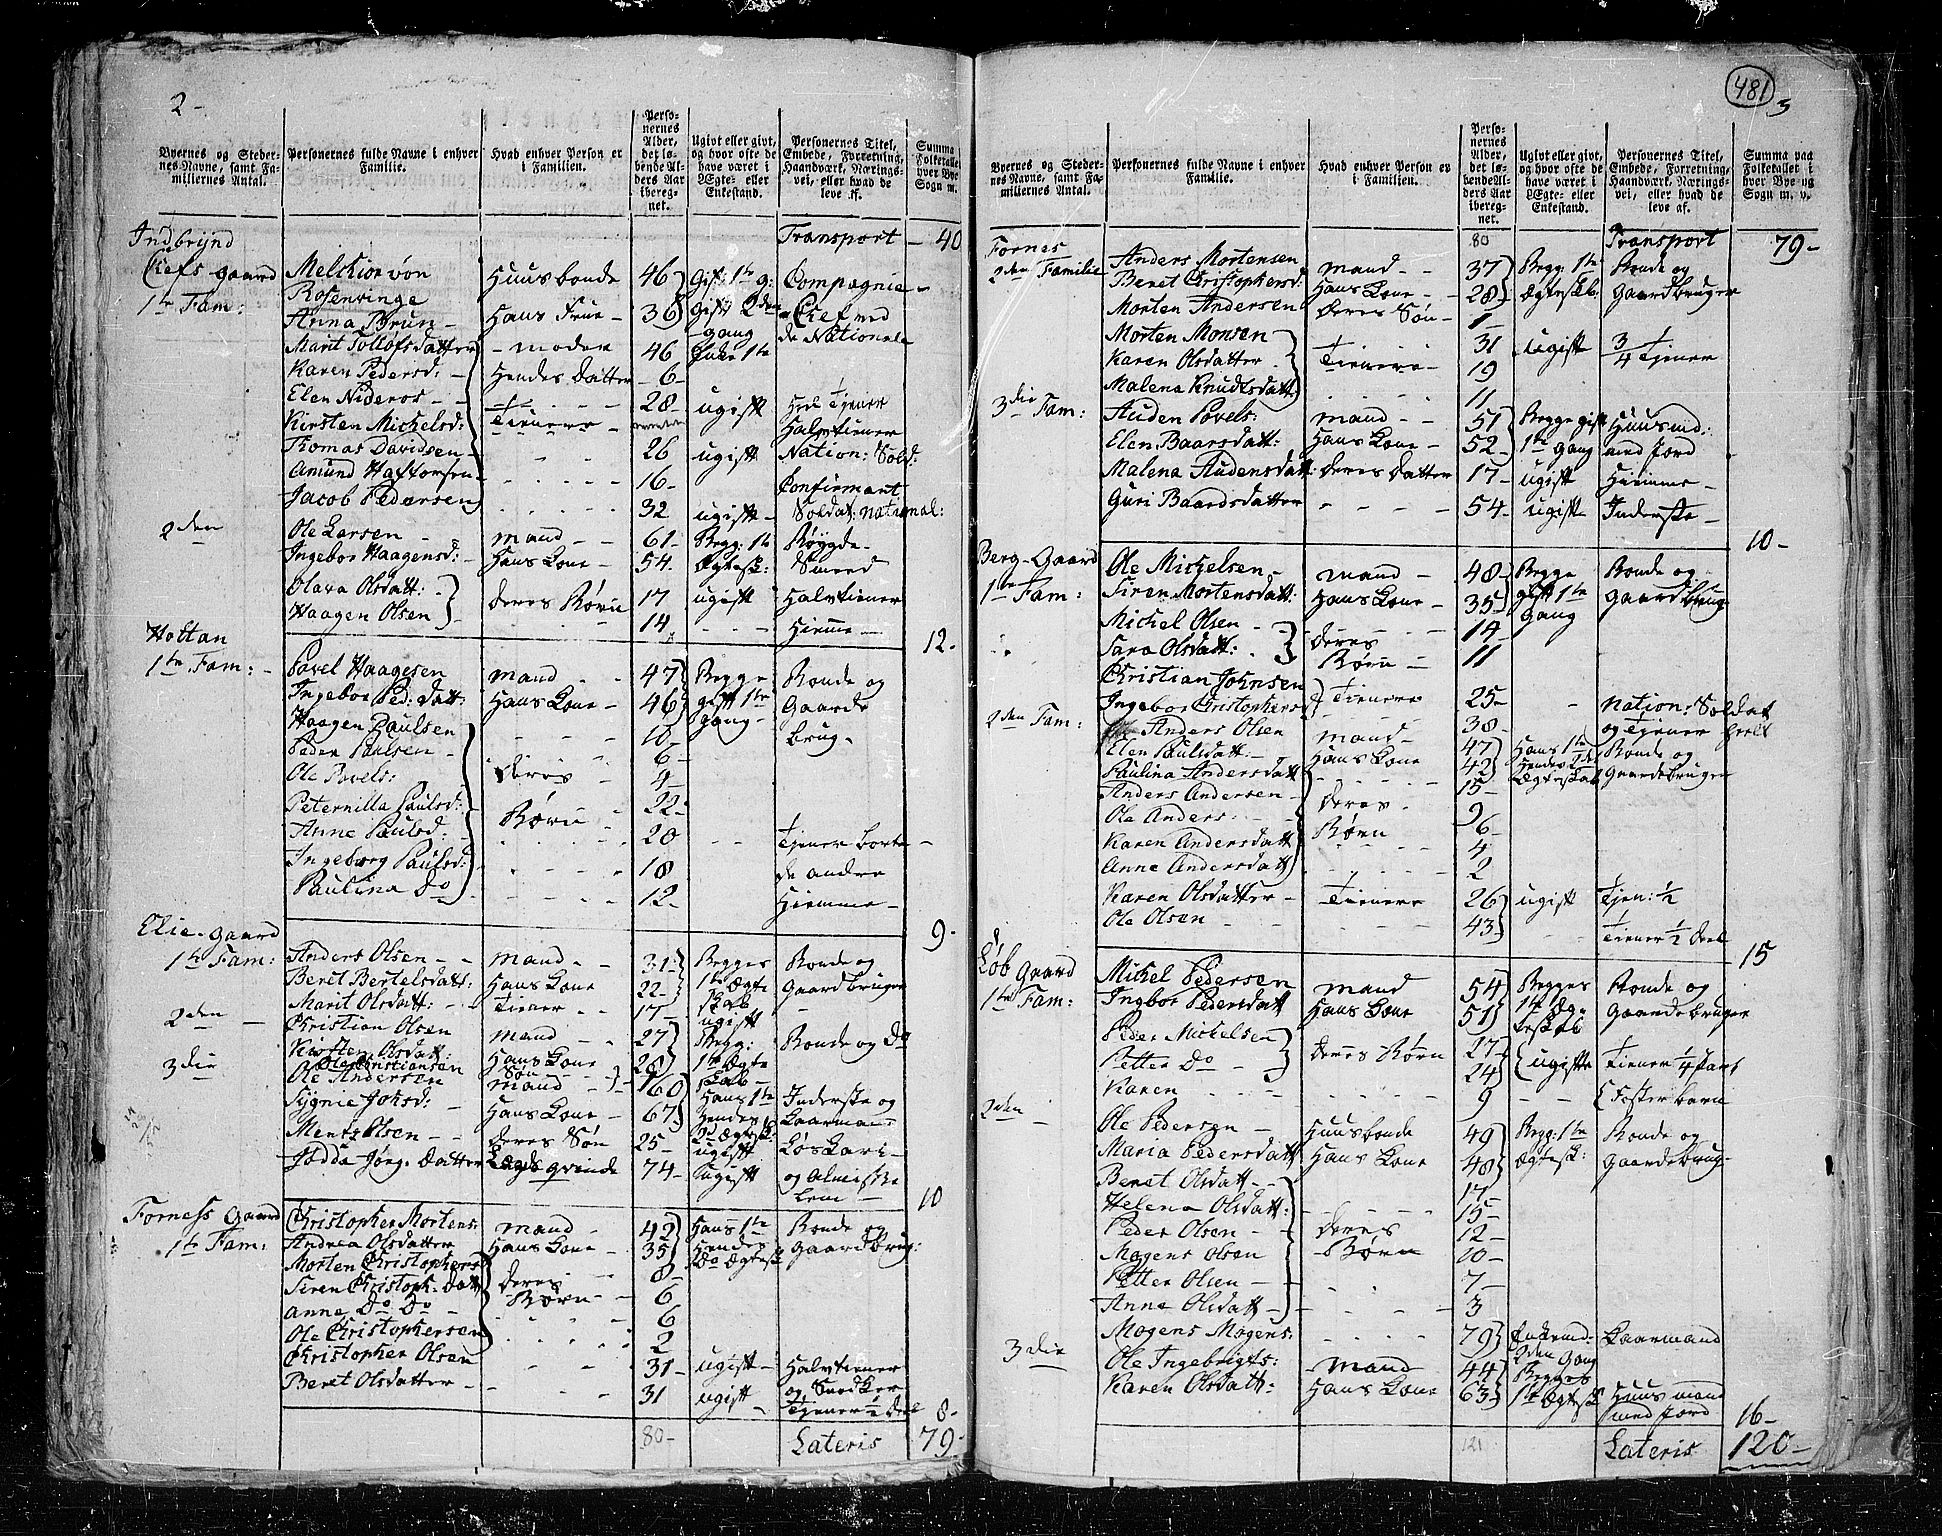 2-
Byernes og Steder-
nes Navne, samt Fa-
miliernes Antal.
Personernes fulde Navne i enhver
Familie.
Hvad enhver Person er
i Familien.
Perso-
nernes
Alder,
det lø-
bende Al-
ders Aar
ibereg-
net.
Ugivt eller givt,
og hvor ofte de
have været i
Ægte- eller
Enkestand.
Personernes Titel,
Embede, Forretning,
Haandværk, Nærings-
vei, eller hvad de
leve af.
Summa
Folketallet
hver Bye
Sogn m.
Transport - 40
Indbrynd
Chefs gaard
1te Fam:
Melchior von Huusbonde 46 Gift 1te g: Compagnie-
Rosenvinge
Anna Brun - Hans Frue - 36 gift 2den Chef ved
gang de Nationale
Marit Tollofsdatter - moder 46 Enke 1te
Karen Pedersd: - Hendes Datter - 6-
Elen Nideros - - 28- ugift Heel Tjener
Kirsten Michelsd: Tienere - Halvtiener
Thomas Davidsen - 26 ugift Nation: Sold:
Amund Haftorsen - 16- Confirmant
Jacob Pedersen 32 ugift - Soldat: national:
2den
Ole Larsen - mand - - 61- Begg: 1te Bøygde-
Ingebor Haagensd: - Hans Kone - 54. Ægtesk: Smed
Olava Olsdatt: - deres Børn 17 ugift Halvtiener
Haagen Olsen 14 - - - Hiemme - 12-
Holtan
1te Fam: -
Povel Haagesen mand - - 47 Begge Bonde og
Ingebor Ped: Datt: Hans Kone - 46 gift 1te Gaarde
gang - brug -
Haagen Paulsen 10-
Peder Paulsen - 6-
Ole Povels: deres 4-
Peternilla Paulsd: Børn 22-
Anne Paulsd: 20 - - Tjener borte -
Ingeborg Paulsd: 18 de andre
Paulina Do 12- Hiemme -
9-
Elie-gaard
1te Fam:
Anders Olsen - - mand - - 31 Begges Bonde og
Beret Bertelsdatt: Hans Kone 22- 1te Ægte Gaardbruger
skab
Marit Olsdatt: - - Tiener - - 17- ugift -
2den -
Christian Olsen mand - - 27 Begg: Bonde og Do
Kirsten Olsdatt: Hans Kone 28 1te Ægte
Ole Christiansen Søn - 1 skab -
3die
Ole Andersen mand - 60 Hans 1te Inderste og
Sygnie Johsd: - Hans Kone - 67 Hendes Kaarmand
2d Ægtesk:
Ments Olsen - - deres Søn 25- ugift Løskarl -
Jødda Jørg: Datter Lægds qvinde 74- Ougift og Almisse
lem -
10
Forness Gaard
1te Fam:
Christopher Mortens: mand - 42 Hans 1te Bonde og
Andrea Olsdatter Hans Kone - 35 Hendes Gaardbrug:
Do Ægtesk
Morten Christophers 8-
Siren Christoph: Datt deres 6
Anne Do Do - Børn - - 6
Ole Christophersen 2
Christopher Olsen - - 31- ugift - Halvtiener
og Snedker
Beret Olsdatter - - 31 ugift - Tjener ½ Deel 8-
80- Lateris 79-
481
3
Byernes og Steder-
nes Navne, samt Fa-
miliernes Antal.
Personernes fulde Navne i enhver
Familie.
Hvad enhver Person er
i Familien.
Perso-
nernes
Alder,
det lø-
bende Al-
ders Aar
ibereg-
net.
Ugivt eller givt,
og hvor ofte de
have været i
Ægte- eller
Enkestand.
Personernes Titel,
Embede, Forretning,
Haandværk, Nærings-
vei, eller hvad de
leve af.
Summa paa
Folketallet i
hver Bye og
Sogn m. v.
80 Transport 79-
Fornes
2den Familie
Anders Mortensen mand - - 37 Begg: 1te Bonde og
Beret Christophersd: Hans Kone - - 28 Ægteskb: Gaardbruger
Morten Andersen deres Søn - 1-
Morten Monsen 31 ugift 3/4 Tjener
Karen Olsdatter - Tienere - 19
Malena Knudtsdatt: 11
3die Fam:
Auden Povels: mand - - 51 Begge gift Huusmd:
Elen Baarsdatt: Hans Kone - 52- 1te Gang med Jord
Malena Audensdatt: deres Datter 17- ugift Hiemme -
Guri Baardsdatter - - - - 54- ugift Inderste -
10-
Berg-Gaard
1te Fam:
Ole Michelsen - mand - 48- Begge Bonde og -
Siren Mortensdatt: Hans Kone - 35 gift 1te Gaardbrug-
Gang
Michel Olsen - deres 14-
Sara Olsdatt: - Børn - 11
Christian Johnsen Tienere 25- - Nation: Soldat
Ingebor Christophersd - 38- og Tjener heelt
2den Fam:
Anders Olsen mand - 47 Hans 1te Bonde og
Elen Paulsdatt: - Hans Kone 42 Hendes 2de Gaardebruger
Ægteskab
Paulina Andersdatt 15-
Anders Andersen - deres - 9
Ole Anders: - - Børn 6-
Karen Andersdatt 4
Anne Andersdatt 2
Karen Olsdatter - Tienere 26 ugift Tjen: ½
Ole Olsen - 43 - - Tiener ½ Deel
15
Løb Gaard
1te Fam:
Michel Pedersen mand 54 Begges Bonde og
Ingbor Pedersdatt Hans Kone 51 1te Æg- Gaardebruger
teskab
Peder Michelsen deres Børn 27- ugifte Tiener ¼ Part
Petter Do - - 24
Karen - - - - 9 - Foster barn
2den -
Ole Pedersen - Huusbonde 49 Begg: 1te Bonde og
Maria Pedersdatt Hans Kone 48 Ægtesk: Gaardebrug-
Beret Olsdatt - - 17
Helena Olsdatt: 15-
Peder Olsen - - deres 12-
Mogens Olsen - Børn 10-
Petter Olsen - - 7-
Anne Olsdatt - 3
Mogens Mogens: - - - - 79 Enkemd: Kaarmand
2den Gang
3die
Ole Ingebrigts: mand 44 Begges
Karen Olsdatt: Hans Kone 63 1te Ægtesk Huusmand
med Jord
16-
121 Lateris 120-